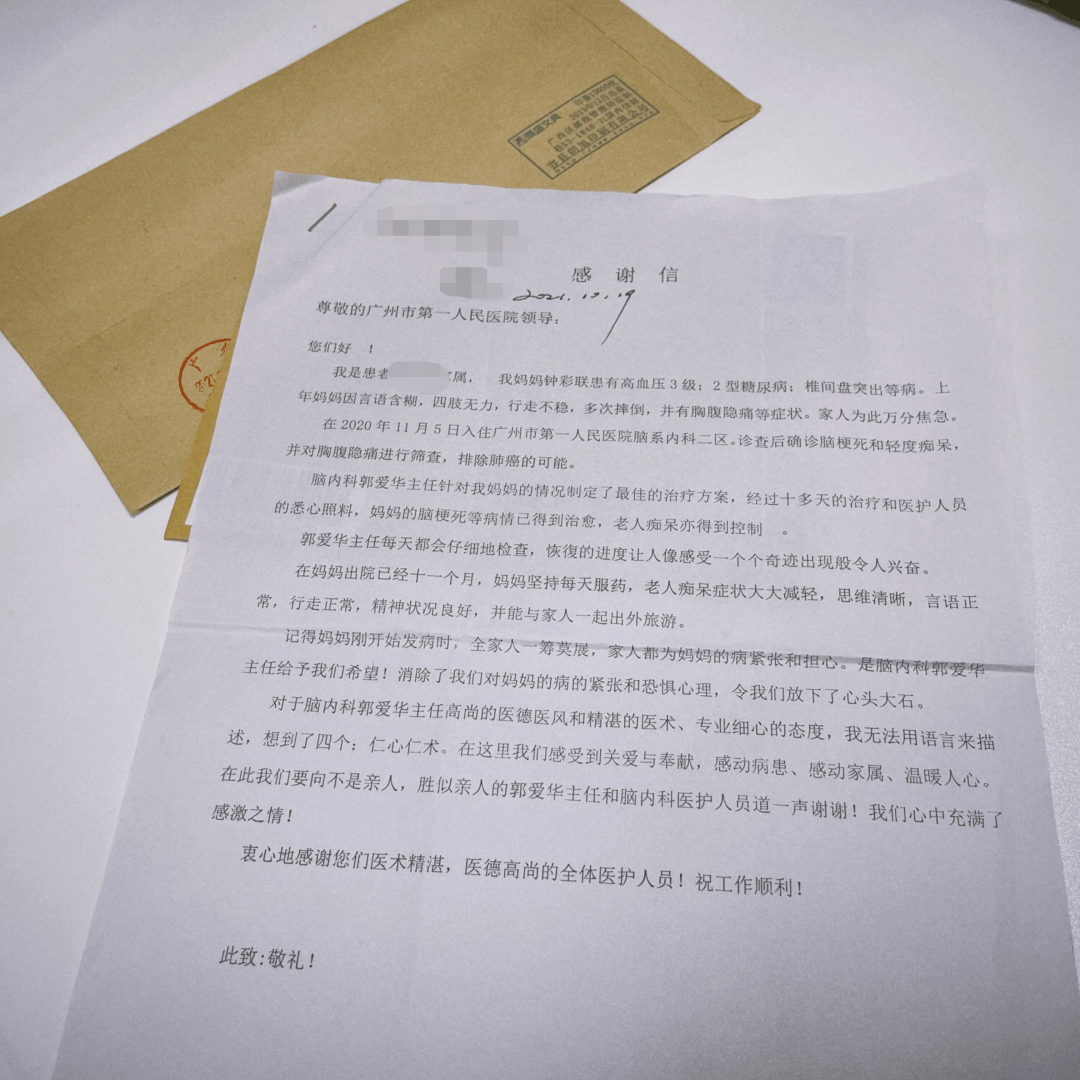 感 谢 信
2021.10.19
尊敬的广州市第一人民医院领导：
您们好 ！
我是患者 属， 我妈妈钟彩联患有高血压3级；2型糖尿病；椎间盘突出等病。上
年妈妈因言语含糊，四肢无力，行走不稳，多次摔倒，并有胸腹隐痛等症状。家人为此万分焦急。
在2020年11月5日入住广州市第一人民医院脑系内科二区。诊查后确诊脑梗死和轻度痴呆，
并对胸腹隐痛进行筛查，排除肺癌的可能。
脑内科郭爱华主任针对我妈妈的情况制定了最佳的治疗方案，经过十多天的治疗和医护人员
的悉心照料，妈妈的脑梗死等病情已得到治愈，老人痴呆亦得到控制 。
郭爱华主任每天都会仔细地检查，恢復的进度让人像感受一个个奇迹出现般令人兴奋。
在妈妈出院已经十一个月，妈妈坚持每天服药，老人痴呆症状大大减轻，思维清晰，言语正
常，行走正常，精神状况良好，并能与家人一起出外旅游。
记得妈妈刚开始发病时，全家人一筹莫展，家人都为妈妈的病紧张和担心。是脑内科郭爱华
主任给予我们希望！消除了我们对妈妈的病的紧张和恐惧心理，令我们放下了心头大石。
对于脑内科郭爱华主任高尚的医德医风和精湛的医术、专业细心的态度，我无法用语言来描
述，想到了四个：仁心仁术。在这里我们感受到关爱与奉献，感动病患、感动家属、温暖人心。
在此我们要向不是亲人，胜似亲人的郭爱华主任和脑内科医护人员道一声谢谢！我们心中充满了
感激之情！
衷心地感谢您们医术精湛，医德高尚的全体医护人员！祝工作顺利！
此致:敬礼！